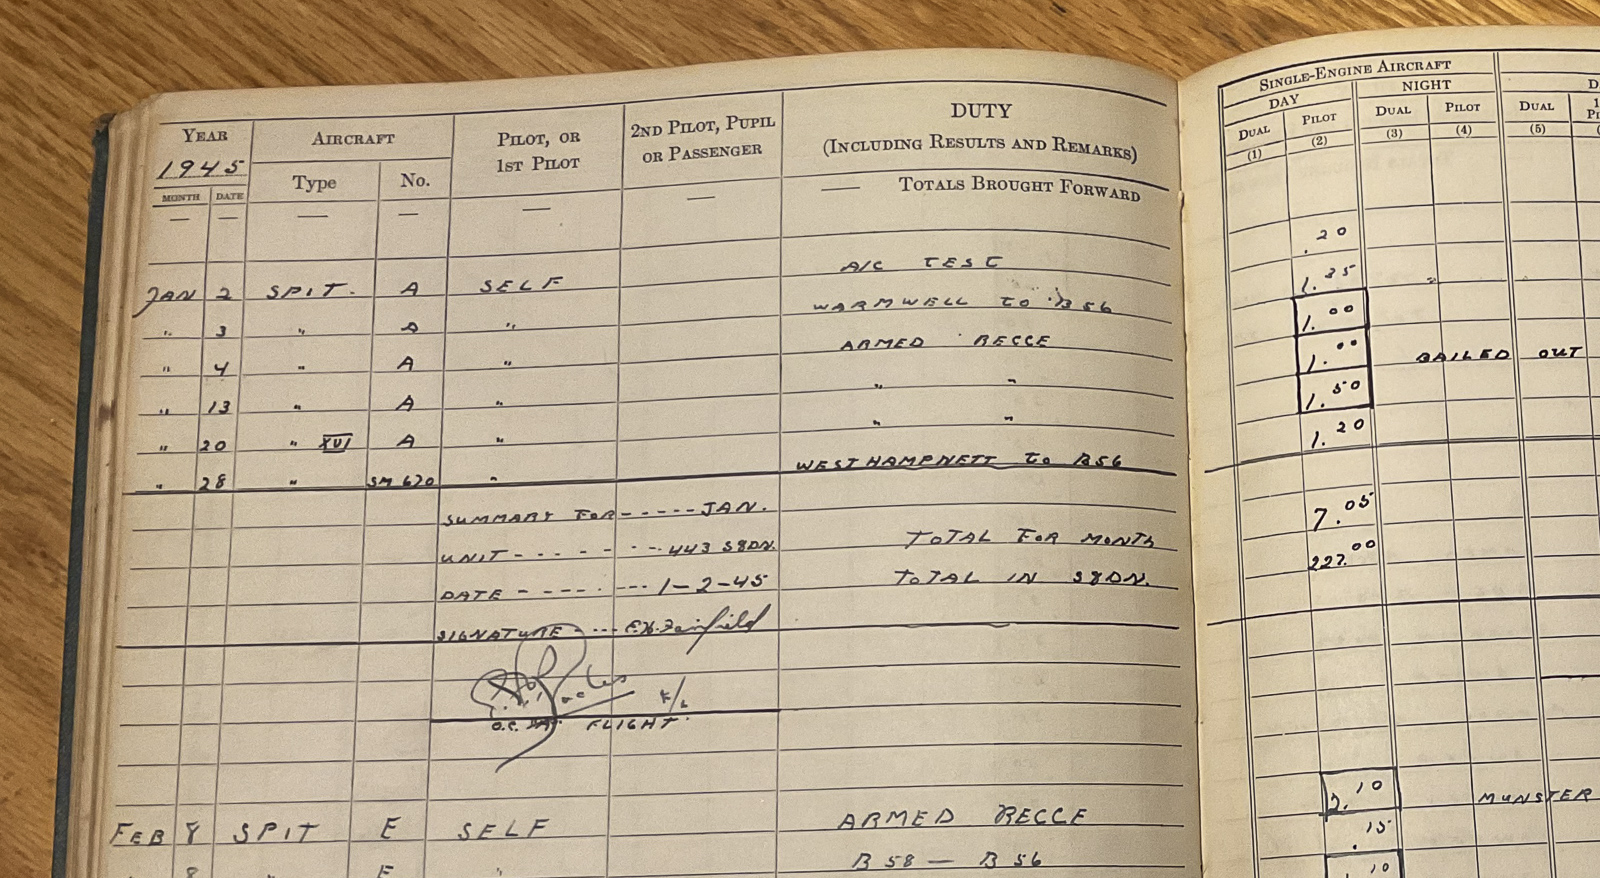 YEAR AIRCRAFT PILOT, OR 1ST PILOT 2ND PILOT, PUPIL OR PASSENGER DUTY (INCLUDING RESULTS AND REMARKS) SINGLE-ENGINE AIRCRAFT
1945 Type No. DAY NIGHT
MONTH DATE DUAL PILOT DUAL PILOT DUAL
(1) (2) (3) (4) (5)
— — — — — — — TOTALS BROUGHT FORWARD
JAN 2 SPIT. A SELF A/C TEST .20
" 3 " A " WARMWELL TO B56 1.35
" 4 " A " ARMED RECCE 1.00
" 13 " A " " " 1.00 BAILED OUT
" 20 " XVI A " " " 1.50
" 28 " SM 620 " WESTHAMPNETT TO B56 1.20
SUMMARY FOR - - - - - JAN.
UNIT - - - - - - - 443 SQDN. TOTAL FOR MONTH 7.05
DATE - - - - - - - - 1-2-45 TOTAL IN SQDN. 227.00
SIGNATURE - - - - Fairfield
F/L
O.C. FLIGHT.
FEB 8 SPIT E SELF ARMED RECCE 2.10 MUNSTER
8 " E " B 58 — B 56 .15
.10